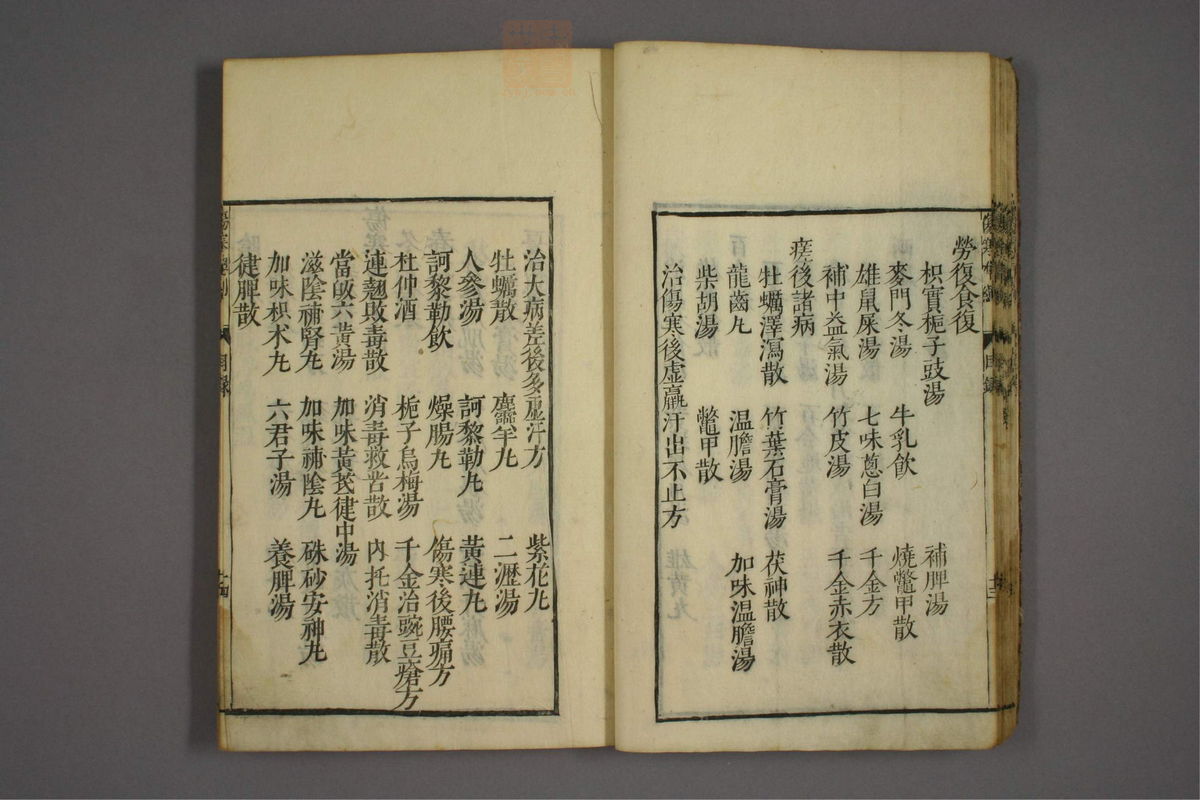 勞復食復
枳實梔子豉湯 補脾湯
麥門冬湯 牛乳飲 燒鼈甲散
雄鼠屎湯 七味蔥白湯 千金方
補中益氣湯 竹皮湯 千金赤衣散
瘥後諸病
牡蠣澤瀉散 竹葉石膏湯 茯神散
龍齒丸 温膽湯 加味温膽湯
柴胡湯 鼈甲散
治傷寒後虛羸汗出不止方
目錄
治大病差後多虛汗方 紫花丸
牡蠣散 麝香丸 二瀝湯
人參湯 訶黎勒丸 黃連丸
訶黎勒飲 燥腸丸 傷寒後腰痛方
杜仲酒 梔子烏梅湯 千金治豌豆瘡方
連翹敗毒散 消毒救苦散 內托消毒散
當歸六黃湯 加味黃芪健中湯
滋陰補腎丸 加味補陰丸 硃砂安神丸
加味枳术丸 六君子湯 養脾湯
健脾散
目錄
十四